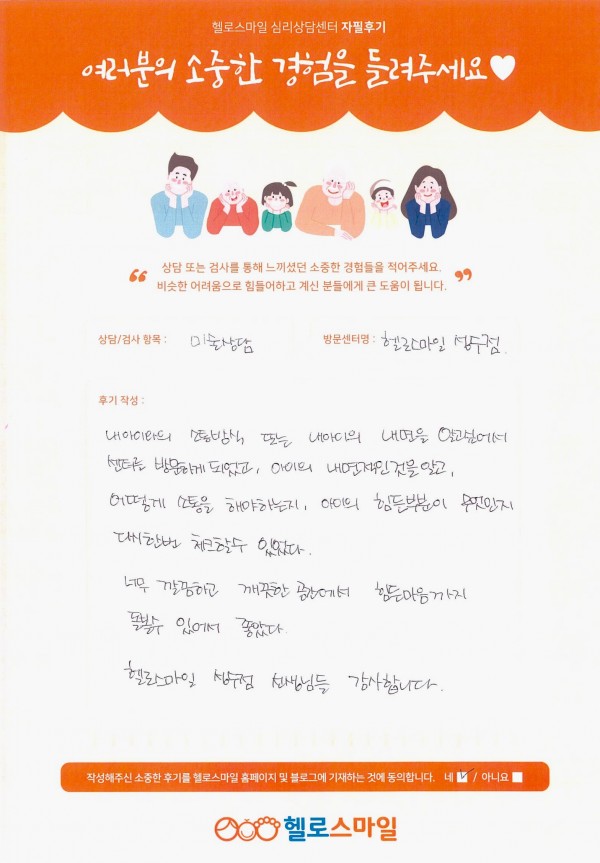 헬로스마일 심리상담센터 자필후기
여러분의 소중한 경험을 들려주세요♥
상담 또는 검사를 통해 느끼셨던 소중한 경험들을 적어주세요.
“ 비슷한 어려움으로 힘들어하고 계신 분들에게 큰 도움이 됩니다. ”
상담/검사 항목 : 미술상담 방문센터명 : 헬로스마일 성수점.
후기 작성 :
내아이와의 소통방식 또는 내아이의 내면을 알고싶어서
센터를 방문하게 되었고, 아이의 내면적인것을 알고,
어떻게 소통을 해야하는지, 아이의 힘든부분이 무엇인지
다시한번 체크할수 있었다.
너무 깔끔하고 깨끗한 공간에서 힘든마음까지
돌볼수 있어서 좋았다.
헬로스마일 성수점 선생님들 감사합니다.
작성해주신 소중한 후기를 헬로스마일 홈페이지 및 블로그에 기재하는 것에 동의합니다. 네 ☑ / 아니요 ☐
헬로스마일